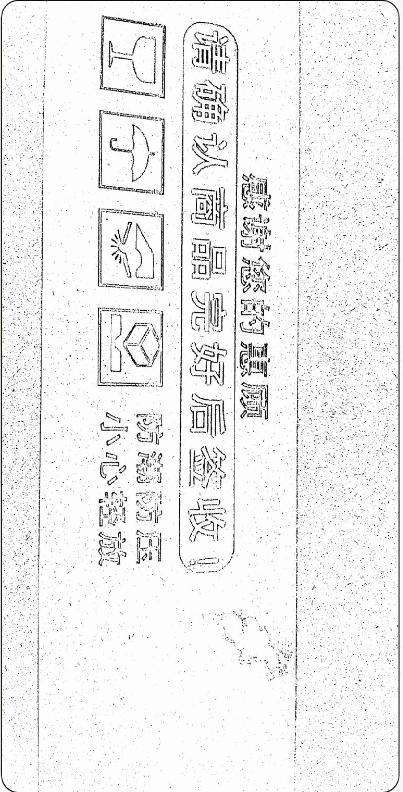 感谢您的惠顾
请确认商品完好后签收！
防潮防压
小心轻放